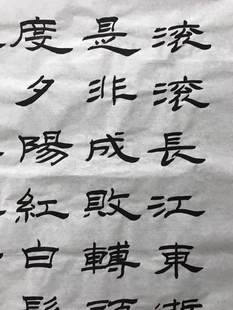 滚滚長江東逝
是非成敗轉頭
度夕陽紅白髮